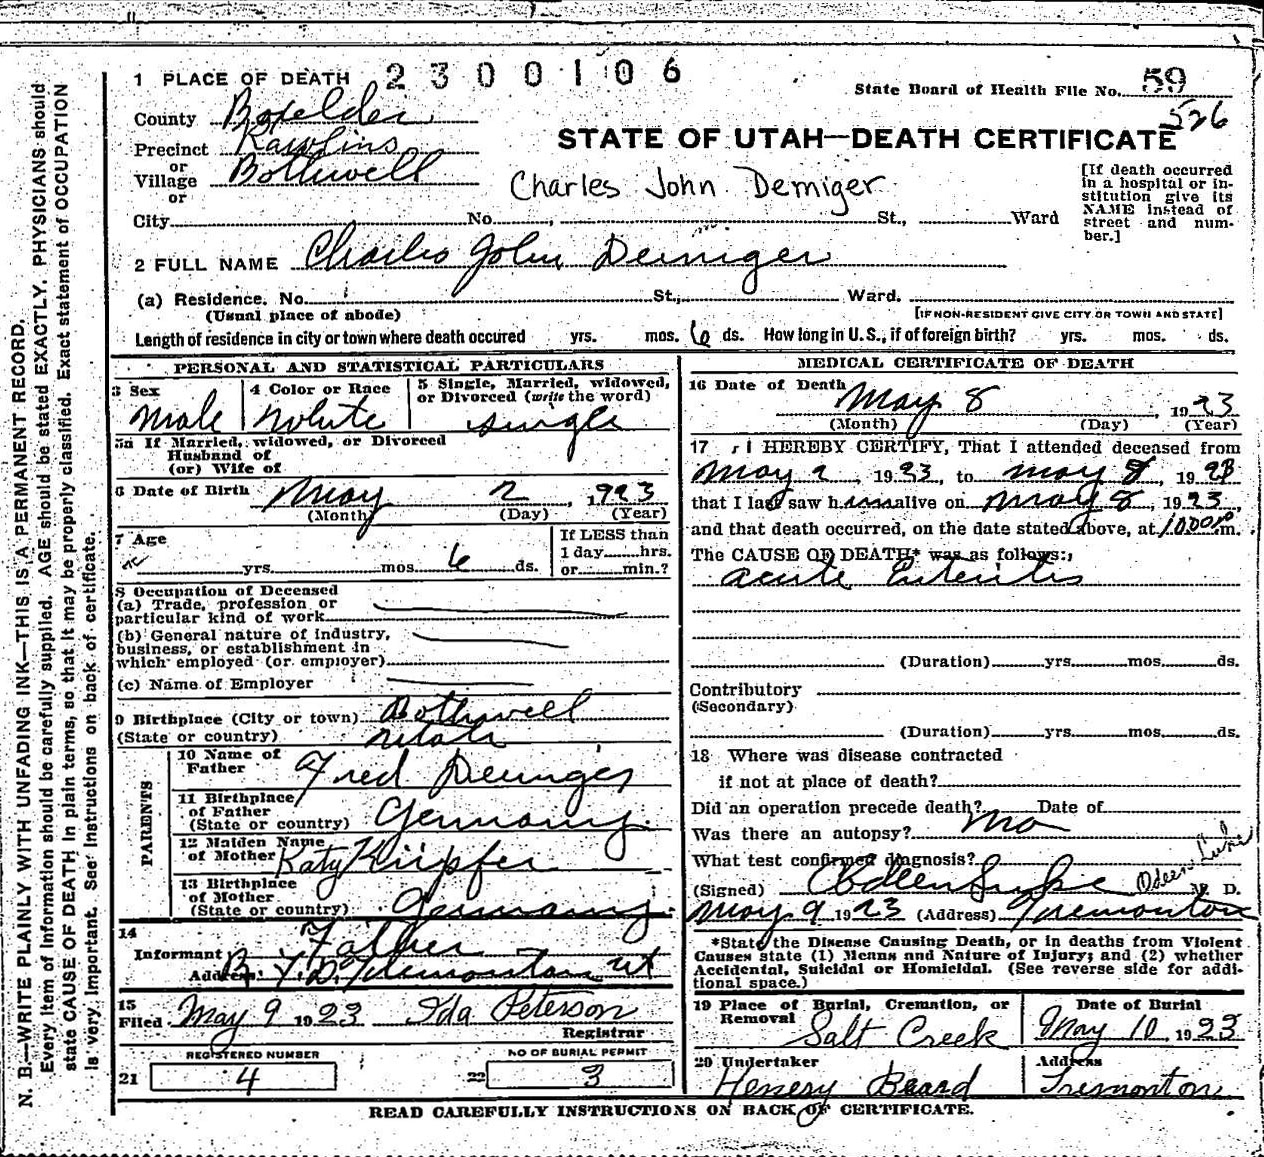 1 PLACE OF DEATH 2300106
State Board of Health File No. 59
526
County Boxelder
STATE OF UTAH—DEATH CERTIFICATE
Precinct Rawlins
or
Village Bothwell
or
Charles John Demiger
[If death occurred in a hospital or institution give its NAME instead of street and number.]
City No. , St., Ward
2 FULL NAME Charles John Deiniger
(a) Residence. No. St., Ward.
(Usual place of abode) [IF NON-RESIDENT GIVE CITY OR TOWN AND STATE]
Length of residence in city or town where death occured yrs. mos. 6 ds. How long in U.S., if of foreign birth? yrs. mos. ds.
PERSONAL AND STATISTICAL PARTICULARS
3 Sex 4 Color or Race 5 Single, Married, widowed, or Divorced (write the word)
Male White single
5a If Married, widowed, or Divorced
Husband of
(or) Wife of
6 Date of Birth May 2, 1923
(Month) (Day) (Year)
7 Age
yrs. mos. 6 ds.
If LESS than
1 day......hrs.
or......min.?
8 Occupation of Deceased
(a) Trade, profession or
particular kind of work
(b) General nature of industry,
business, or establishment in
which employed (or employer)
(c) Name of Employer
9 Birthplace (City or town) Bothwell
(State or country) Utah
PARENTS
10 Name of
Father Fred Deiniger
11 Birthplace
of Father
(State or country) Germany
12 Maiden Name
of Mother Katy Küpfer
13 Birthplace
of Mother
(State or country) Germany
14
Informant Father
Address Tremonton Ut
15
Filed May 9 1923 Ida Peterson
Registrar
REGISTERED NUMBER NO OF BURIAL PERMIT
21 4 22 3
MEDICAL CERTIFICATE OF DEATH
16 Date of Death May 8, 1923
(Month) (Day) (Year)
17 I HEREBY CERTIFY, That I attended deceased from
May 2, 1923, to May 8, 1923
that I last saw him alive on May 8, 1923,
and that death occurred, on the date stated above, at m.
The CAUSE OF DEATH* was as follows:
Acute Enteritis
(Duration) yrs. mos. ds.
Contributory
(Secondary)
(Duration) yrs. mos. ds.
18 Where was disease contracted
if not at place of death?
Did an operation precede death? Date of
Was there an autopsy? No
What test confirmed diagnosis?
(Signed) Odeen Luke Odeen Luke M. D.
May 9 1923 (Address) Tremonton
*State the Disease Causing Death, or in deaths from Violent
Causes state (1) Means and Nature of Injury; and (2) whether
Accidental, Suicidal or Homicidal. (See reverse side for addi-
tional space.)
19 Place of Burial, Cremation, or Removal Date of Burial
Salt Creek May 10, 1923
20 Undertaker Address
Henery Beard Tremonton
READ CAREFULLY INSTRUCTIONS ON BACK OF CERTIFICATE.
N. B.—WRITE PLAINLY WITH UNFADING INK—THIS IS A PERMANENT RECORD.
Every item of Information should be carefully supplied. AGE should be stated EXACTLY. PHYSICIANS should
state CAUSE OF DEATH in plain terms, so that it may be properly classified. Exact statement of OCCUPATION
is very important. See instructions on back of certificate.